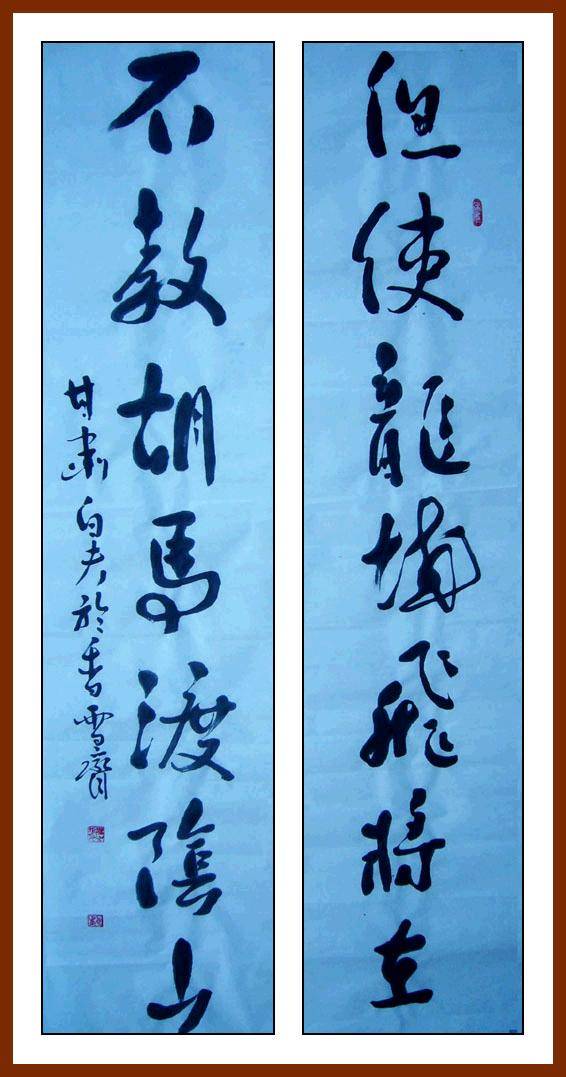 但使龍城飛將在
不教胡馬渡陰山
甘肅白夫於香雪齋